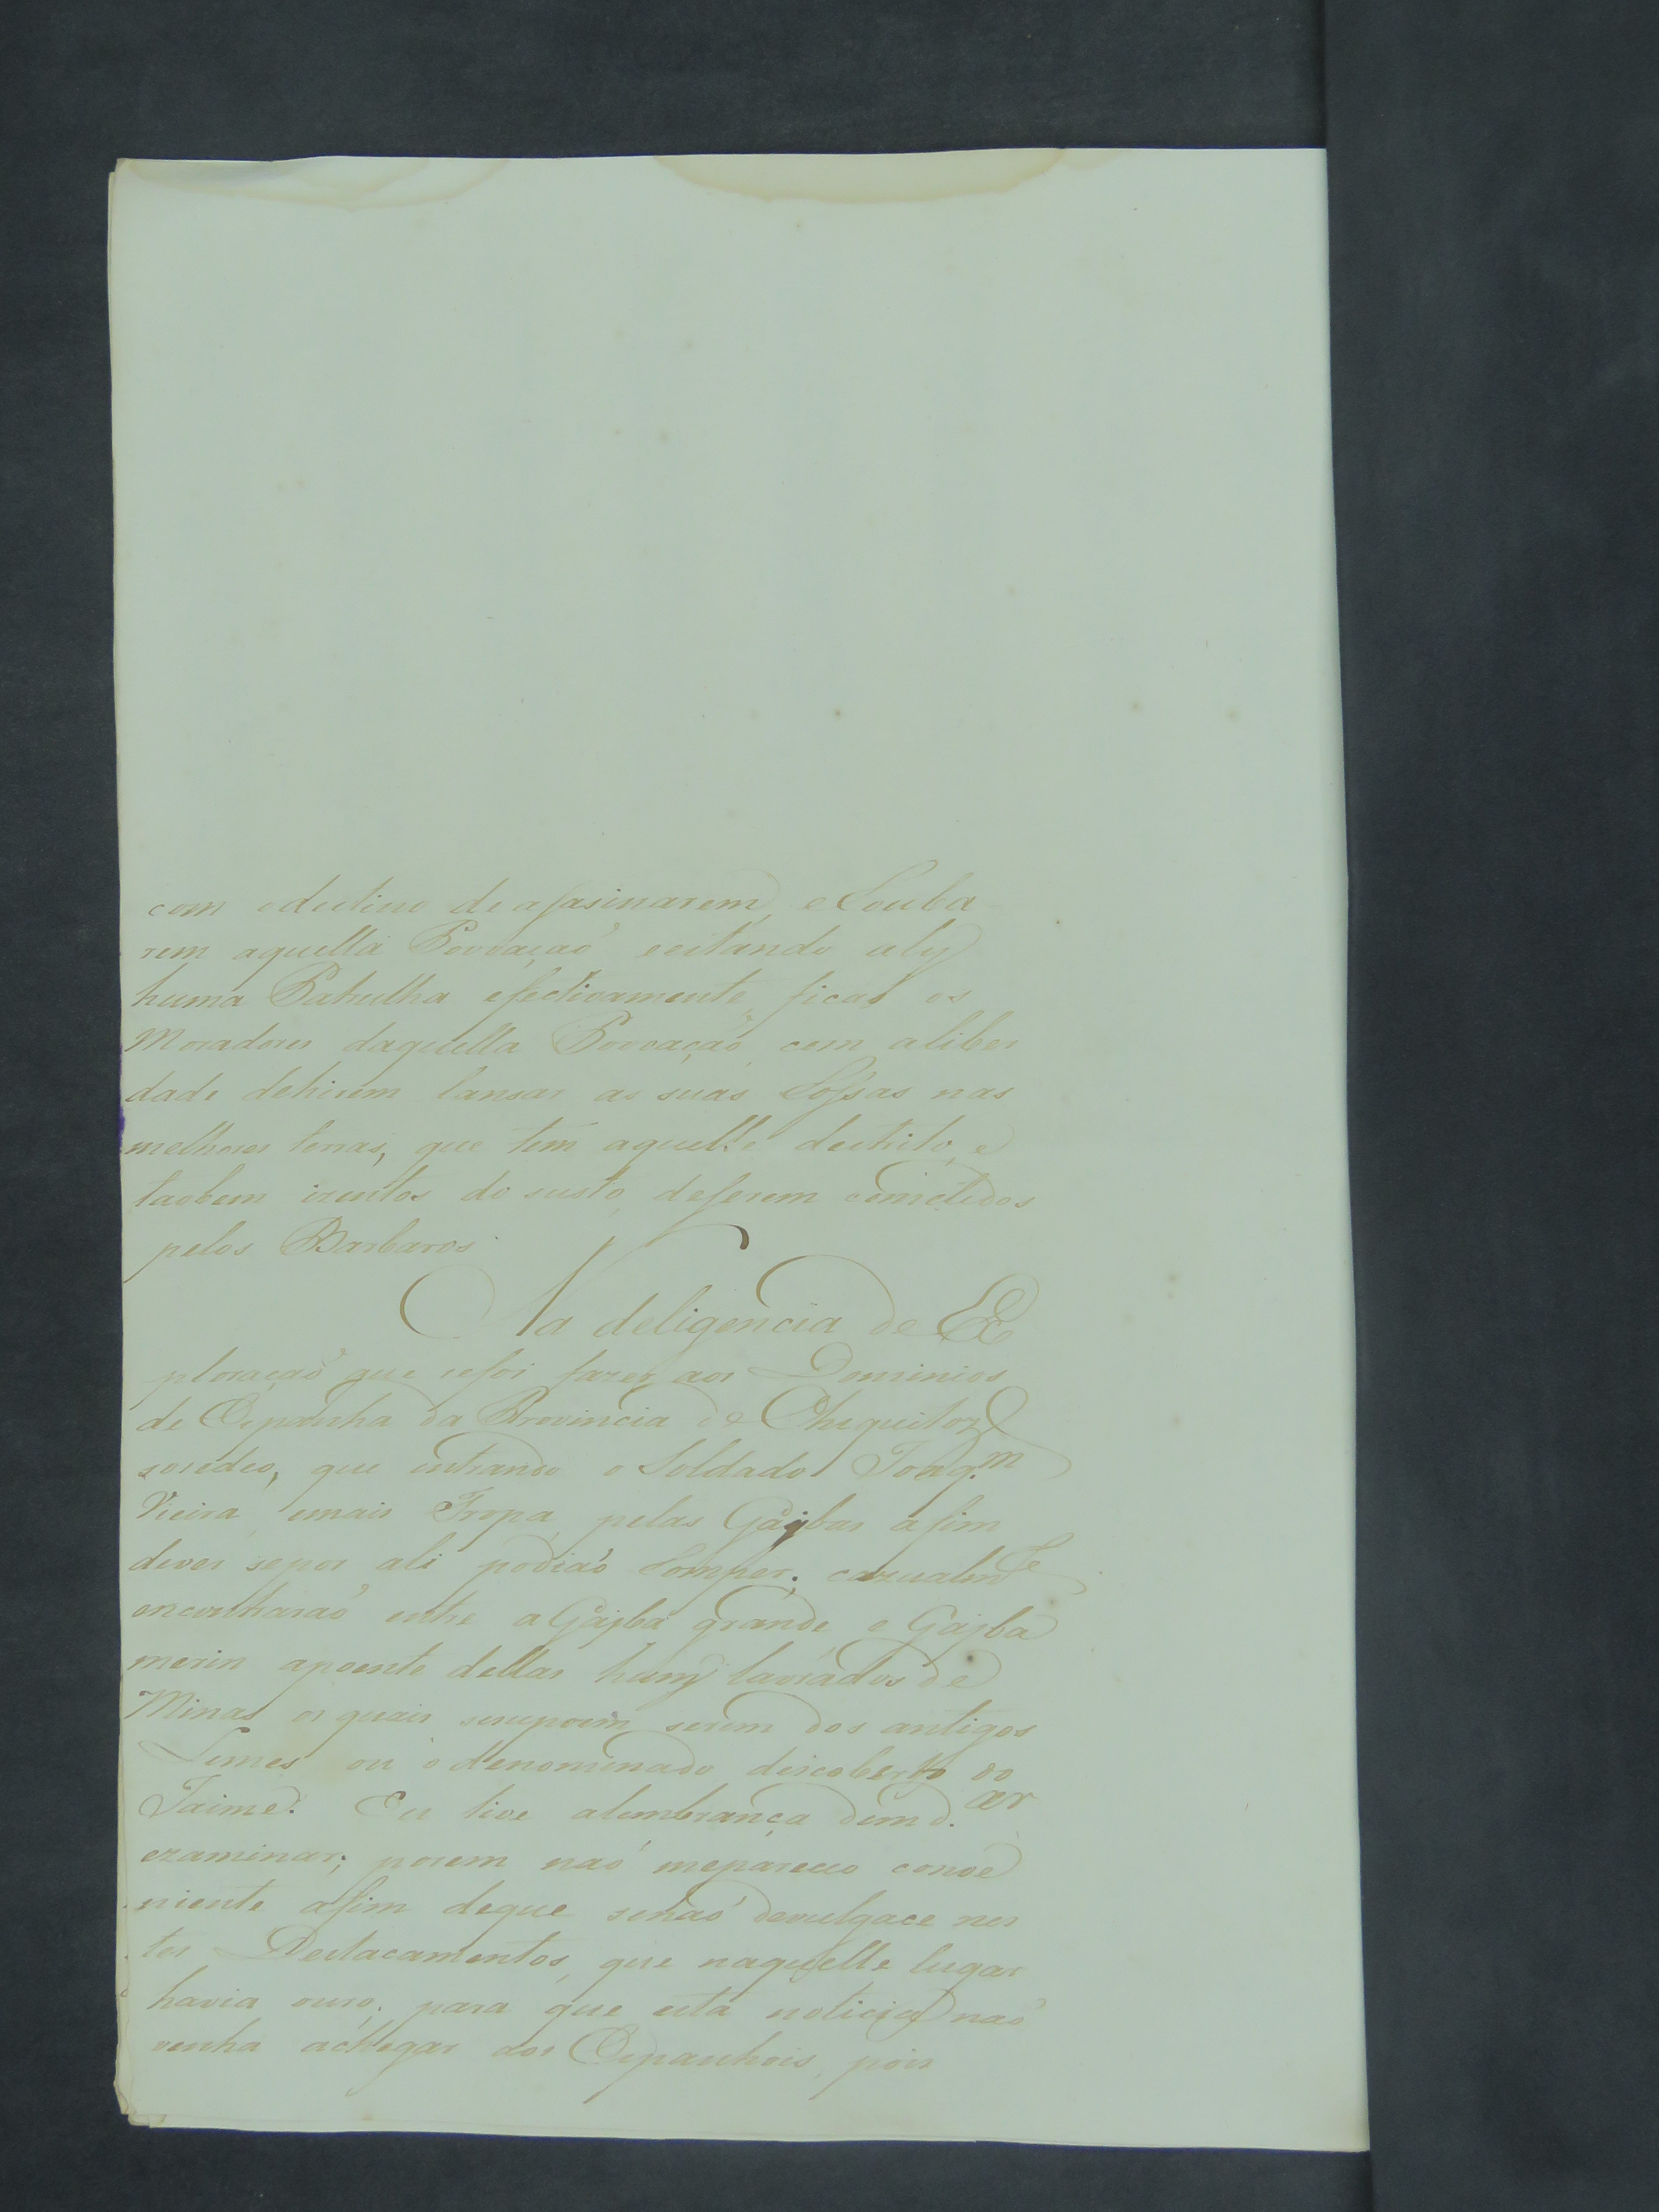 com odestino de assasinarem, e Rouba
rem aquella Povoaçaõ evitando aly
huma Patrulha efectivamente, ficaõ os
Moradores daquella Povoaçaõ com aliber
dade dehirem lansar as suas Rossas nas
melhores terras, que tem aquelle destrito, e
taobem izentos do susto deserem cometidos
pelos Barbaros
Na deligencia de Ex
ploraçaõ que sefoi fazer aos Dominios
de Espanha da Provincia de Chiquitos
sosedeo, que entrando o Soldado Joaq.m
Vieira emais Tropa pelas Gaÿbas afim
dever sepor ali podiaõ Romper; cazualm.te
encontraraõ entre a Gaÿba grande e Gaÿba
merin apoente dellas huns lavrados de
Minas os quais sesupoem serem dos antigos
Lemes ou o denominado descoberto do
Jaime. Eu tive alembrança demd.ar
ezaminar; porem naõ mepareceo conve
niente afim deque senaõ devulgace nes
tes Destacamentos, que naquelle lugar
havia ouro, para que esta noticia naõ
venha achegar aos Espanhois, pois